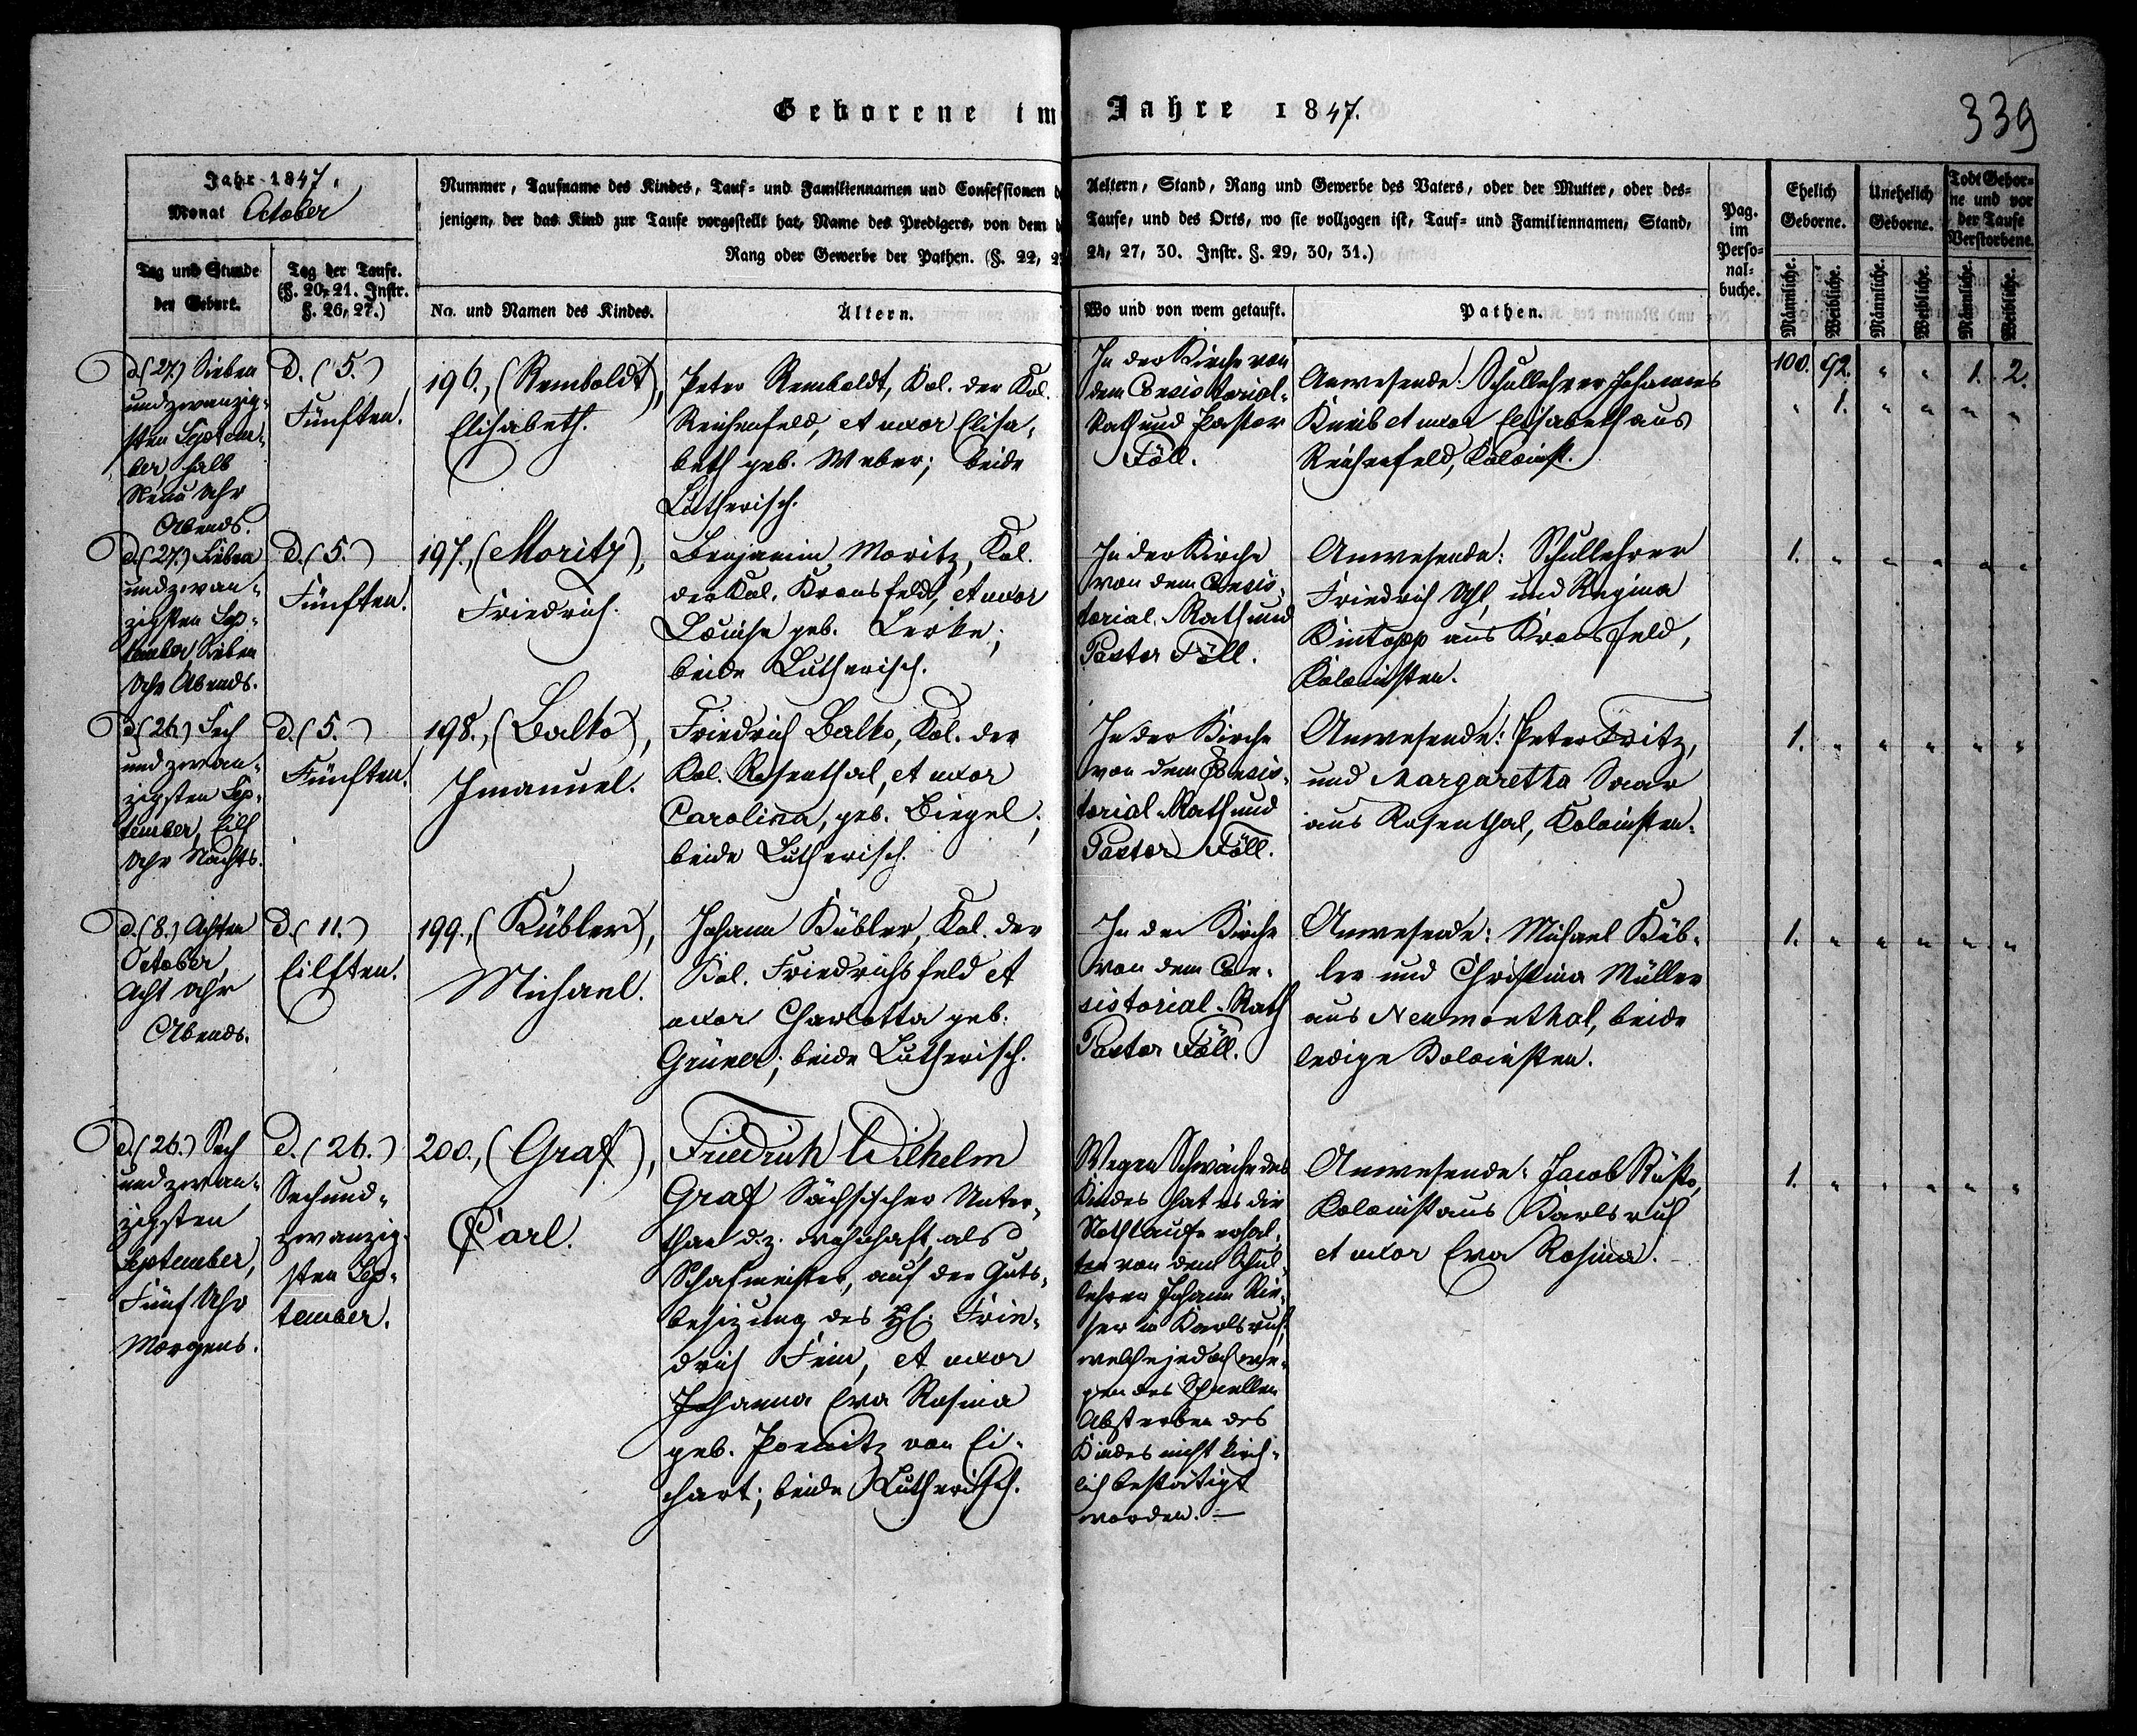 Geborene im Jahre 1847.
339
Jahr 1847.
Monat October
Tag und Stunde
der Geburt.
Tag der Taufe.
(§. 20, 21. Instr.
§. 26, 27.)
Nummer, Taufname des Kindes, Tauf- und Familiennamen und Confessionen d
jenigen, der das Kind zur Taufe vorgestellt hat, Name des Predigers, von dem d
Rang oder Gewerbe der Pathen. (§. 22, 2
No. und Namen des Kindes.
Ältern.
Aeltern, Stand, Rang und Gewerbe des Vaters, oder der Mutter, oder des-
Taufe, und des Orts, wo sie vollzogen ist, Tauf- und Familiennamen, Stand,
24, 27, 30. Instr. §. 29, 30, 31.)
Wo und von wem getauft.
Pathen.
Pag.
im
Perso-
nal-
buche.
Ehelich
Geborne.
Unehelich
Geborne.
Todt Gebor-
ne und vor
der Taufe
Verstorbene.
Männliche.
Weibliche.
Männliche.
Weibliche.
Männliche.
Weibliche.
100. 92. " " 1. 2.
d. (27.) Sieben
und zwanzig-
sten Septem-
ber, halb
Neun Uhr
Abends.
D. (5.)
Fünften.
196., (Remboldt),
Elisabeth.
Peter Remboldt, Kol. der Kol.
Reichenfeld, et uxor Elisa-
beth geb. Weber; beide
Lutherisch.
In der Kirche von
dem Consistorial-
Rath und Pastor
Föll.
Anwesende: Schullehrer Johannes
Kneib et uxor Elisabeth aus
Reichenfeld, Kolonist.
" 1. " " " "
d. (27.) Sieben
und zwan-
zigsten Sep-
tember Sieben
Uhr Abends.
D. (5.)
Fünften.
197., (Moritz),
Friedrich.
Benjamin Moritz, Kol.
der Kol. Kronsfeld, et uxor
Louise geb. Lerke;
beide Lutherisch.
In der Kirche
von dem Consis-
torial-Rath und
Pastor Föll.
Anwesende: Schullehrer
Friedrich Uhl, und Regina
Kintopp aus Kronsfeld,
Kolonisten.
1. " " " " "
d. (26.) Sech
und zwan-
zigsten Sep-
tember, Eilf
Uhr Nachts.
D. (5.)
Fünften.
198., (Balko),
Imanuel.
Friedrich Balko, Kol. der
Kol. Rosenthal, et uxor
Carolina, geb. Biegel;
beide Lutherisch.
In der Kirche
von dem Consis-
torial-Rath und
Pastor Föll.
Anwesende: Peter Fritz,
und Margaretha Saar
aus Rosenthal, Kolonisten.
1. " " " " "
d. (8.) Achten
October,
Acht Uhr
Abends.
D. (11.)
Eilften.
199., (Kübler),
Michael.
Johann Kübler, Kol. der
Kol. Friedrichsfeld et
uxor Charlotta geb.
Grüner; beide Lutherisch.
In der Kirche
von dem Con-
sistorial-Rath
Pastor Föll.
Anwesende: Michael Küb-
ler und Christina Müller
aus Neumonthal, beide
ledige Kolonisten.
1. " " " " "
d. (26.) Sech
und zwan-
zigsten
September,
Fünf Uhr
Morgens.
D. (26.)
Sechund-
zwanzig-
sten Sep-
tember.
200., (Graf),
Carl.
Friedrich Wilhelm
Graf Sächsischer Unter-
than d. z. wohnhaft als
Schafmeister, auf der Guts-
besizung des H. Frie-
drich Fein, et uxor
Johanna Eva Rosina
geb. Poenitz von Ei-
chart; beide Lutherisch.
Wegen Schwäche des
Kindes hat es die
Nothtaufe erhal-
ten von dem Schul-
lehrer Johann
in Karlsruh,
welche jedoch we-
gen des Schnellen
Absterben des
Kindes nicht kirch-
lich bestätigt
worden. —
Anwesende: Jacob
Kolonist aus Karlsruh
et uxor Eva Rosina. —
1. " " " " "